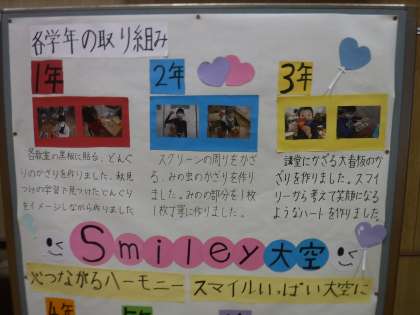 各学年の取り組み
1年
2年
3年
各教室の黒板に貼る、どんぐ
りのかざりを作りました。秋見
つけの学習で見つけたどんぐり
をイメージしながら作りました
スクリーンの周りをかざ
る、みの虫のかざりを作り
ました。みのの部分を1枚
1枚丁寧に作りました。
講堂にかざる大看板のか
ざりを作りました。スマイ
リーから考えて笑顔になる
ようなハートを作りました。
Smiley大空
心つながるハーモニー
スマイルいっぱい大空に
4年